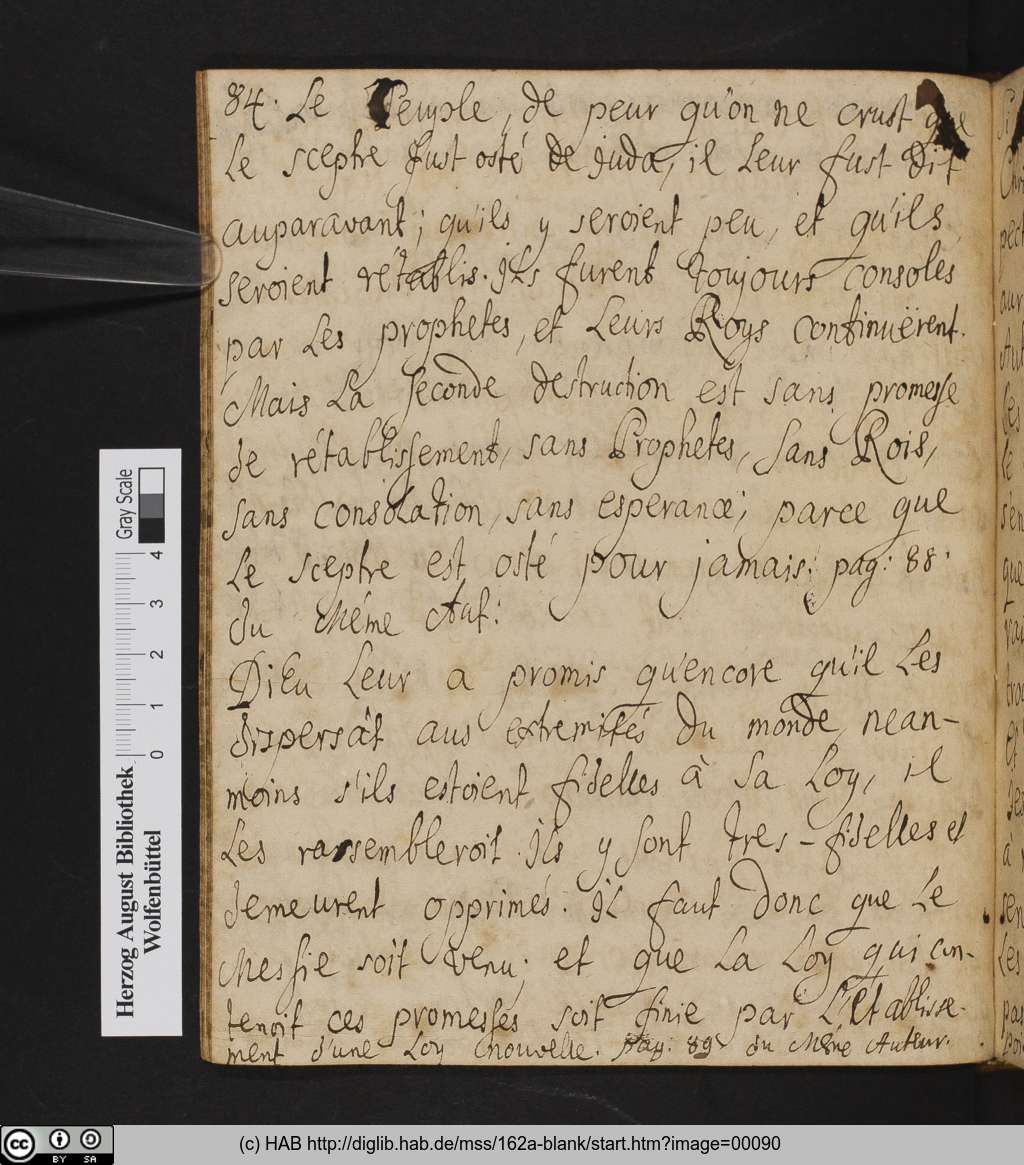 84. Le Peuple, de peur qu'on ne crust que
le sceptre fust osté de Juda, il leur fust dit
auparavant; qu'ils y seroient peu, et qu'ils
seroient rétablis. Ils furent toujours consolés
par les prophetes, et leurs Roys continuërent.
Mais la seconde destruction est sans promesse
de rétablissement, sans Prophetes, sans Rois,
sans consolation, sans esperance; parce que
le sceptre est osté pour jamais. pag: 88.
du Méme Aut:
Dieu leur a promis qu'encore qu'il les
dispersât aus extremités du monde, nean-
moins s'ils estoient fidelles à sa Loy, il
les rassembleroit. Ils y sont tres-fidelles et
demeurent opprimés. Il faut donc que le
Messie soit venu; et que la Loy qui con-
tenoit ces promesses soit finie par l'établisse-
ment d'une Loy nouvelle. pag: 89 du Méme Auteur.
Gray Scale
4
3
2
1
0
Herzog August Bibliothek
Wolfenbüttel
cc BY SA
(c) HAB http://diglib.hab.de/mss/162a-blank/start.htm?image=00090